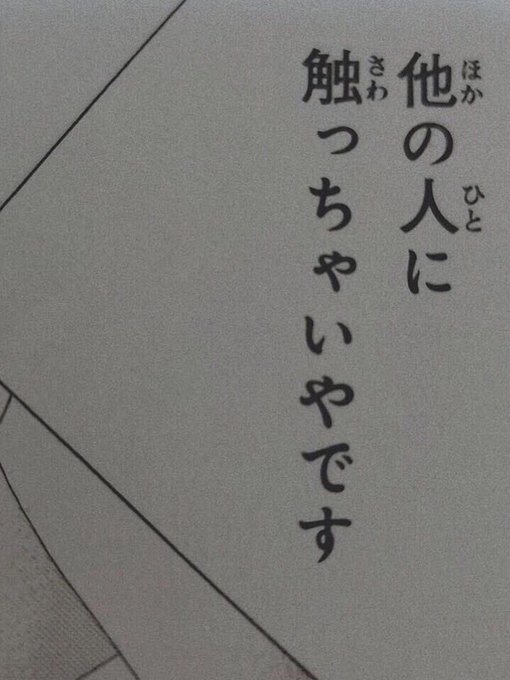 他の人に
触っちゃいやです